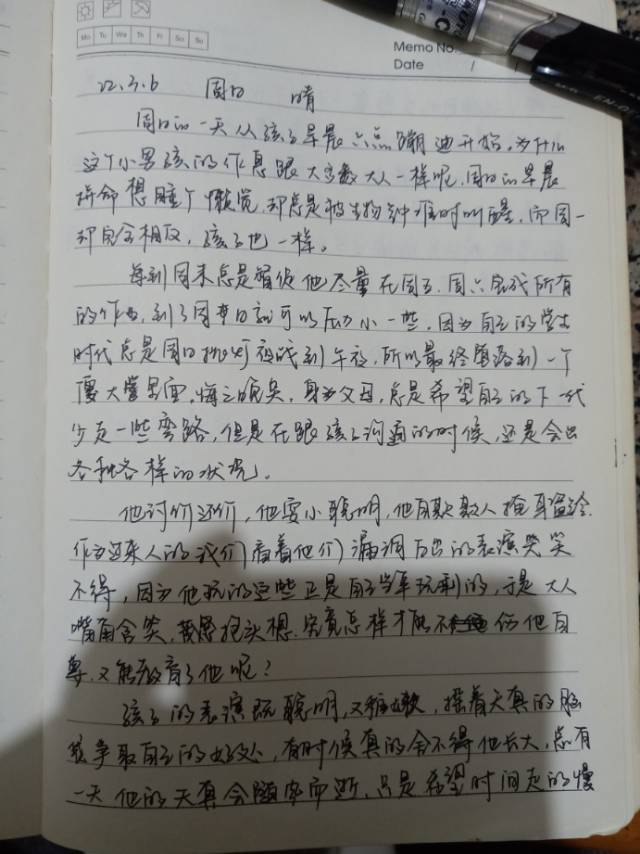 Mo Tu We Th Fr Sa Su
Memo No.
Date / /
22.3.6 周日 晴
周日的一天从孩子早晨六点蹦迪开始，为什么
这个小男孩的作息跟大多数大人一样呢，周日的早晨
拼命想睡个懒觉，却总是被生物钟准时叫醒，而周一
却完全相反，孩子也一样。
每到周末总是督促他尽量在周五、周六完成所有
的作业，到了周末日就可以压力小一些，因为自己的学生
时代总是周日挑灯夜战到午夜，所以最终堕落到一个
大学里面，悔之晚矣，身为父母，总是希望自己的下一代
少走一些弯路，但是在跟孩子沟通的时候，还是会出
各种各样的状况。
他讨价还价，他耍小聪明，他自欺欺人掩耳盗铃，
作为过来人的我们看着他们漏洞百出的表演哭笑
不得，因为他玩的这些正是自己当年玩剩的，于是大人
嘴角含笑，抱头想，究竟怎样才能不伤他自
尊，又能教育了他呢？
孩子的表演既聪明，又稚嫩，摇着天真的脑
袋争取自己的好处，有时候真的舍不得他长大，总有
一天他的天真会随年而逝，只是希望时间走的慢